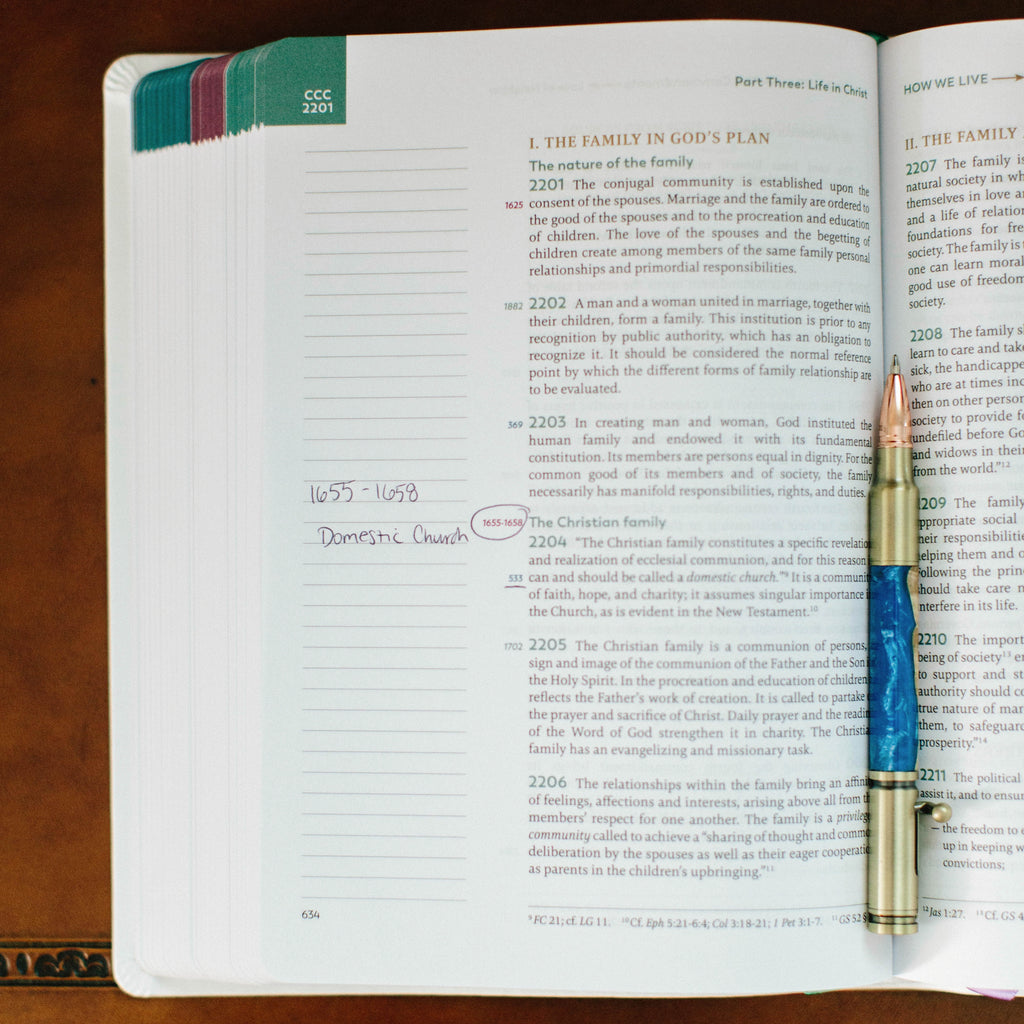 CCC
2201
Part Three: Life in Christ
I. THE FAMILY IN GOD'S PLAN
The nature of the family
2201 The conjugal community is established upon the
1625 consent of the spouses. Marriage and the family are ordered to
the good of the spouses and to the procreation and education
of children. The love of the spouses and the begetting of
children create among members of the same family personal
relationships and primordial responsibilities.
1882 2202 A man and a woman united in marriage, together with
their children, form a family. This institution is prior to any
recognition by public authority, which has an obligation to
recognize it. It should be considered the normal reference
point by which the different forms of family relationship are
to be evaluated.
369 2203 In creating man and woman, God instituted the
human family and endowed it with its fundamental
constitution. Its members are persons equal in dignity. For the
common good of its members and of society, the family
necessarily has manifold responsibilities, rights, and duties.
1655-1658
Domestic Church
1655-1658 The Christian family
2204 "The Christian family constitutes a specific
and realization of ecclesial communion, and for this reason
533 can and should be called a domestic church."⁹ It is a
of faith, hope, and charity; it assumes singular importance
the Church, as is evident in the New Testament.¹⁰
1702 2205 The Christian family is a communion of persons,
sign and image of the communion of the Father and the Son
the Holy Spirit. In the procreation and education of children
reflects the Father's work of creation. It is called to partake
the prayer and sacrifice of Christ. Daily prayer and the
of the Word of God strengthen it in charity. The
family has an evangelizing and missionary task.
2206 The relationships within the family bring an
of feelings, affections and interests, arising above all from
members' respect for one another. The family is a
community called to achieve a "sharing of thought and
deliberation by the spouses as well as their eager
as parents in the children's upbringing."¹¹
634
⁹ FC 21; cf. LG 11. ¹⁰ Cf. Eph 5:21-6:4; Col 3:18-21; 1 Pet 3:1-7. ¹¹ GS 52
HOW WE LIVE
II. THE FAMILY
2207 The family is
natural society in
themselves in love
and a life of
foundations for
society. The family is
one can learn
good use of freedom
society.
2208 The family
learn to care and take
sick, the handicapped
who are at times
then on other
society to provide
undefiled before God
and widows in their
from the world."¹²
2209 The family
appropriate social
their responsibilities
helping them and
Following the
should take care
interfere in its life.
2210 The
being of society¹³
to support and
authority should
true nature of
them, to safeguard
prosperity."¹⁴
2211 The political
assist it, and to ensure
— the freedom to
up in keeping
convictions;
¹² Jas 1:27. ¹³ Cf. GS